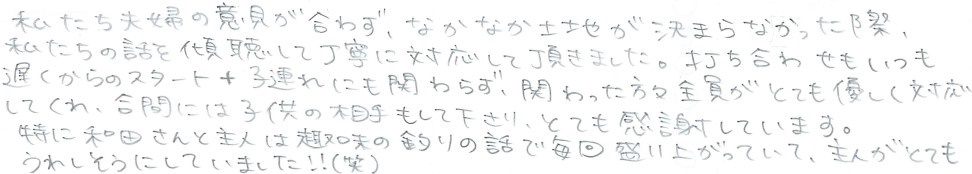 私たち夫婦の意見が合わず、なかなか土地が決まらなかった際、
私たちの話を傾聴して丁寧に対応して頂きました。打ち合わせもいつも
遅くからのスタート+子連れにも関わらず、関わった方全員がとても優しく対応
してくれ、合間には子供の相手もして下さり、とても感謝しています。
特に和田さんと主人は趣味の釣りの話で毎回盛り上がっていて、主人がとても
うれしそうにしていました!!(笑)